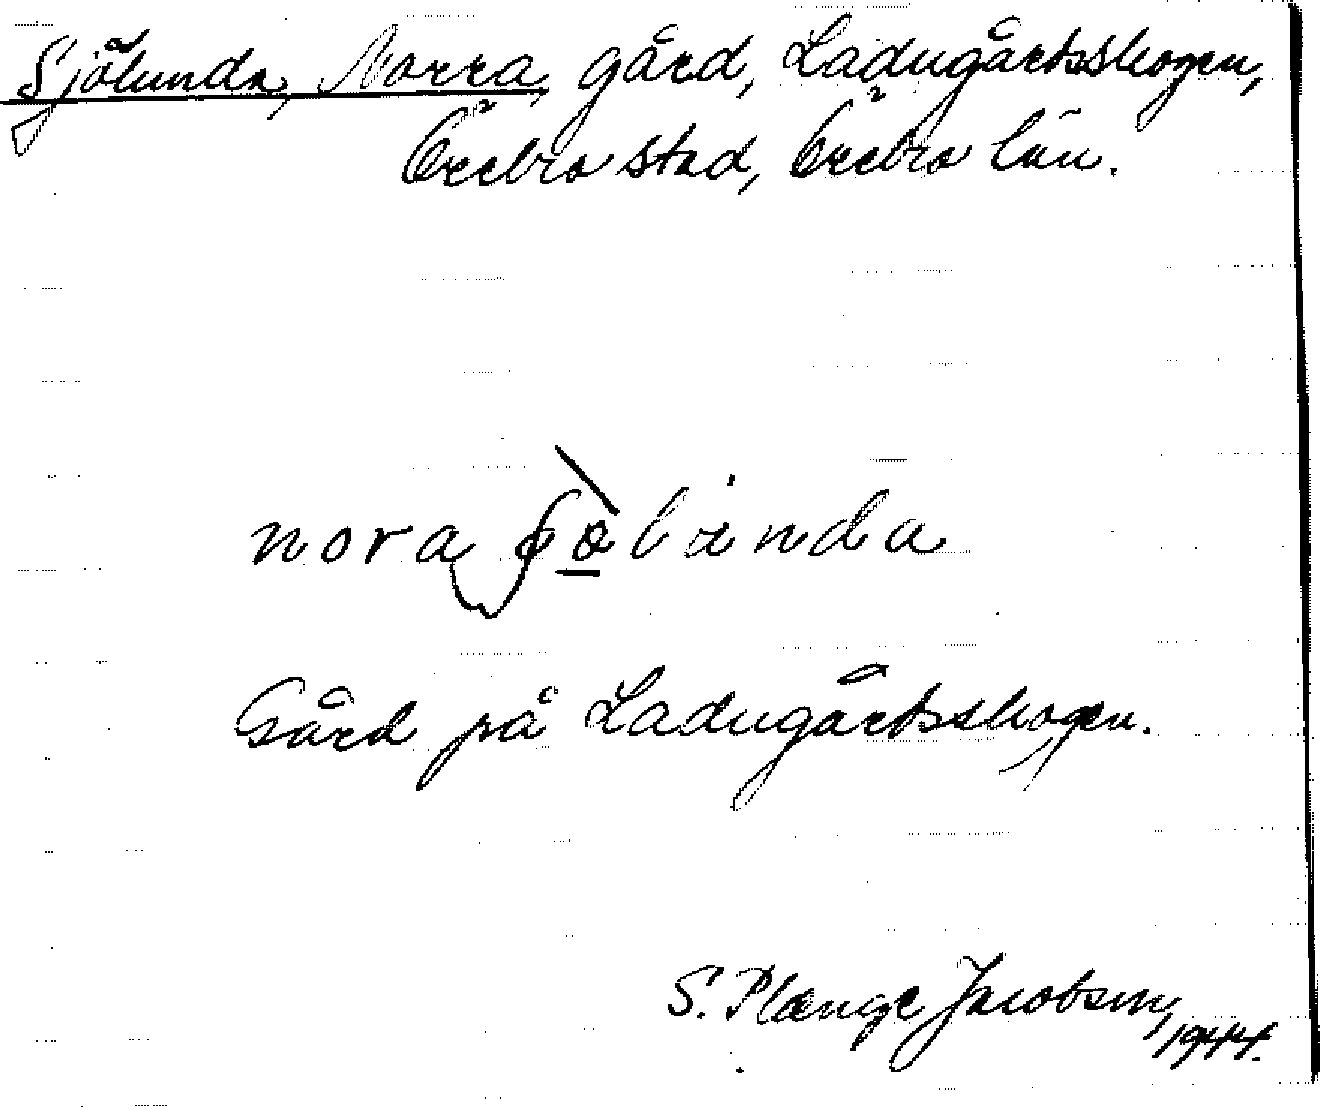 Sjölunda, Norra, gård, Ladugårdsskogen,
Örebro stad, Örebro län.
nora
Gård på Ladugårdsskogen.
S. Plænge Jacobson,
1944.